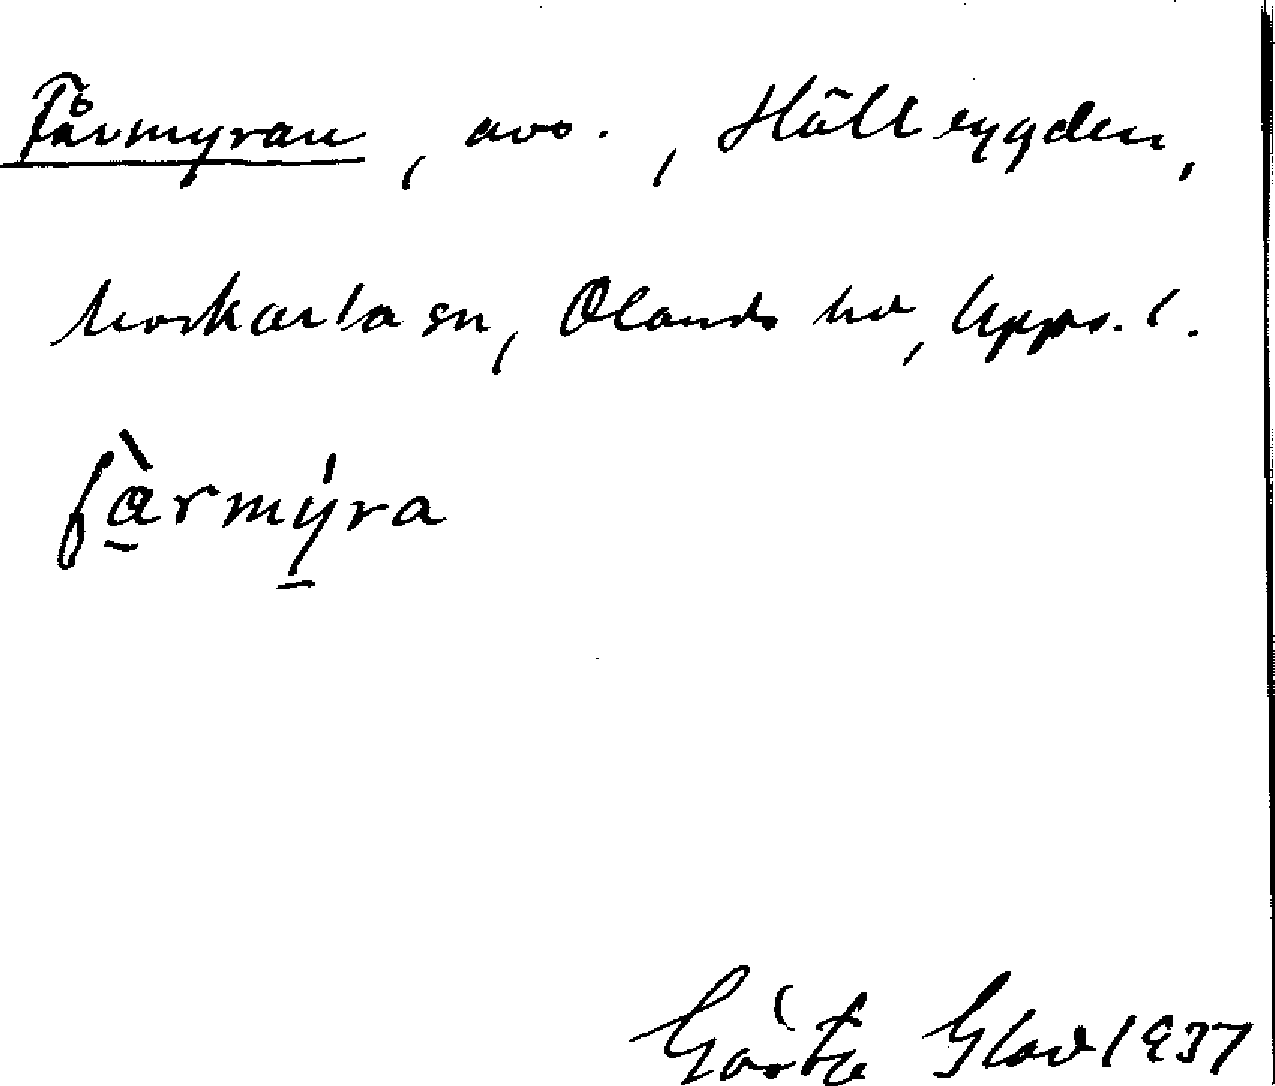 Fårmyran, avs., Hållsygden,
Morkarla sn, Olands hd, Upps. l.
fàrmy̍ra
Gösta Glad 1937